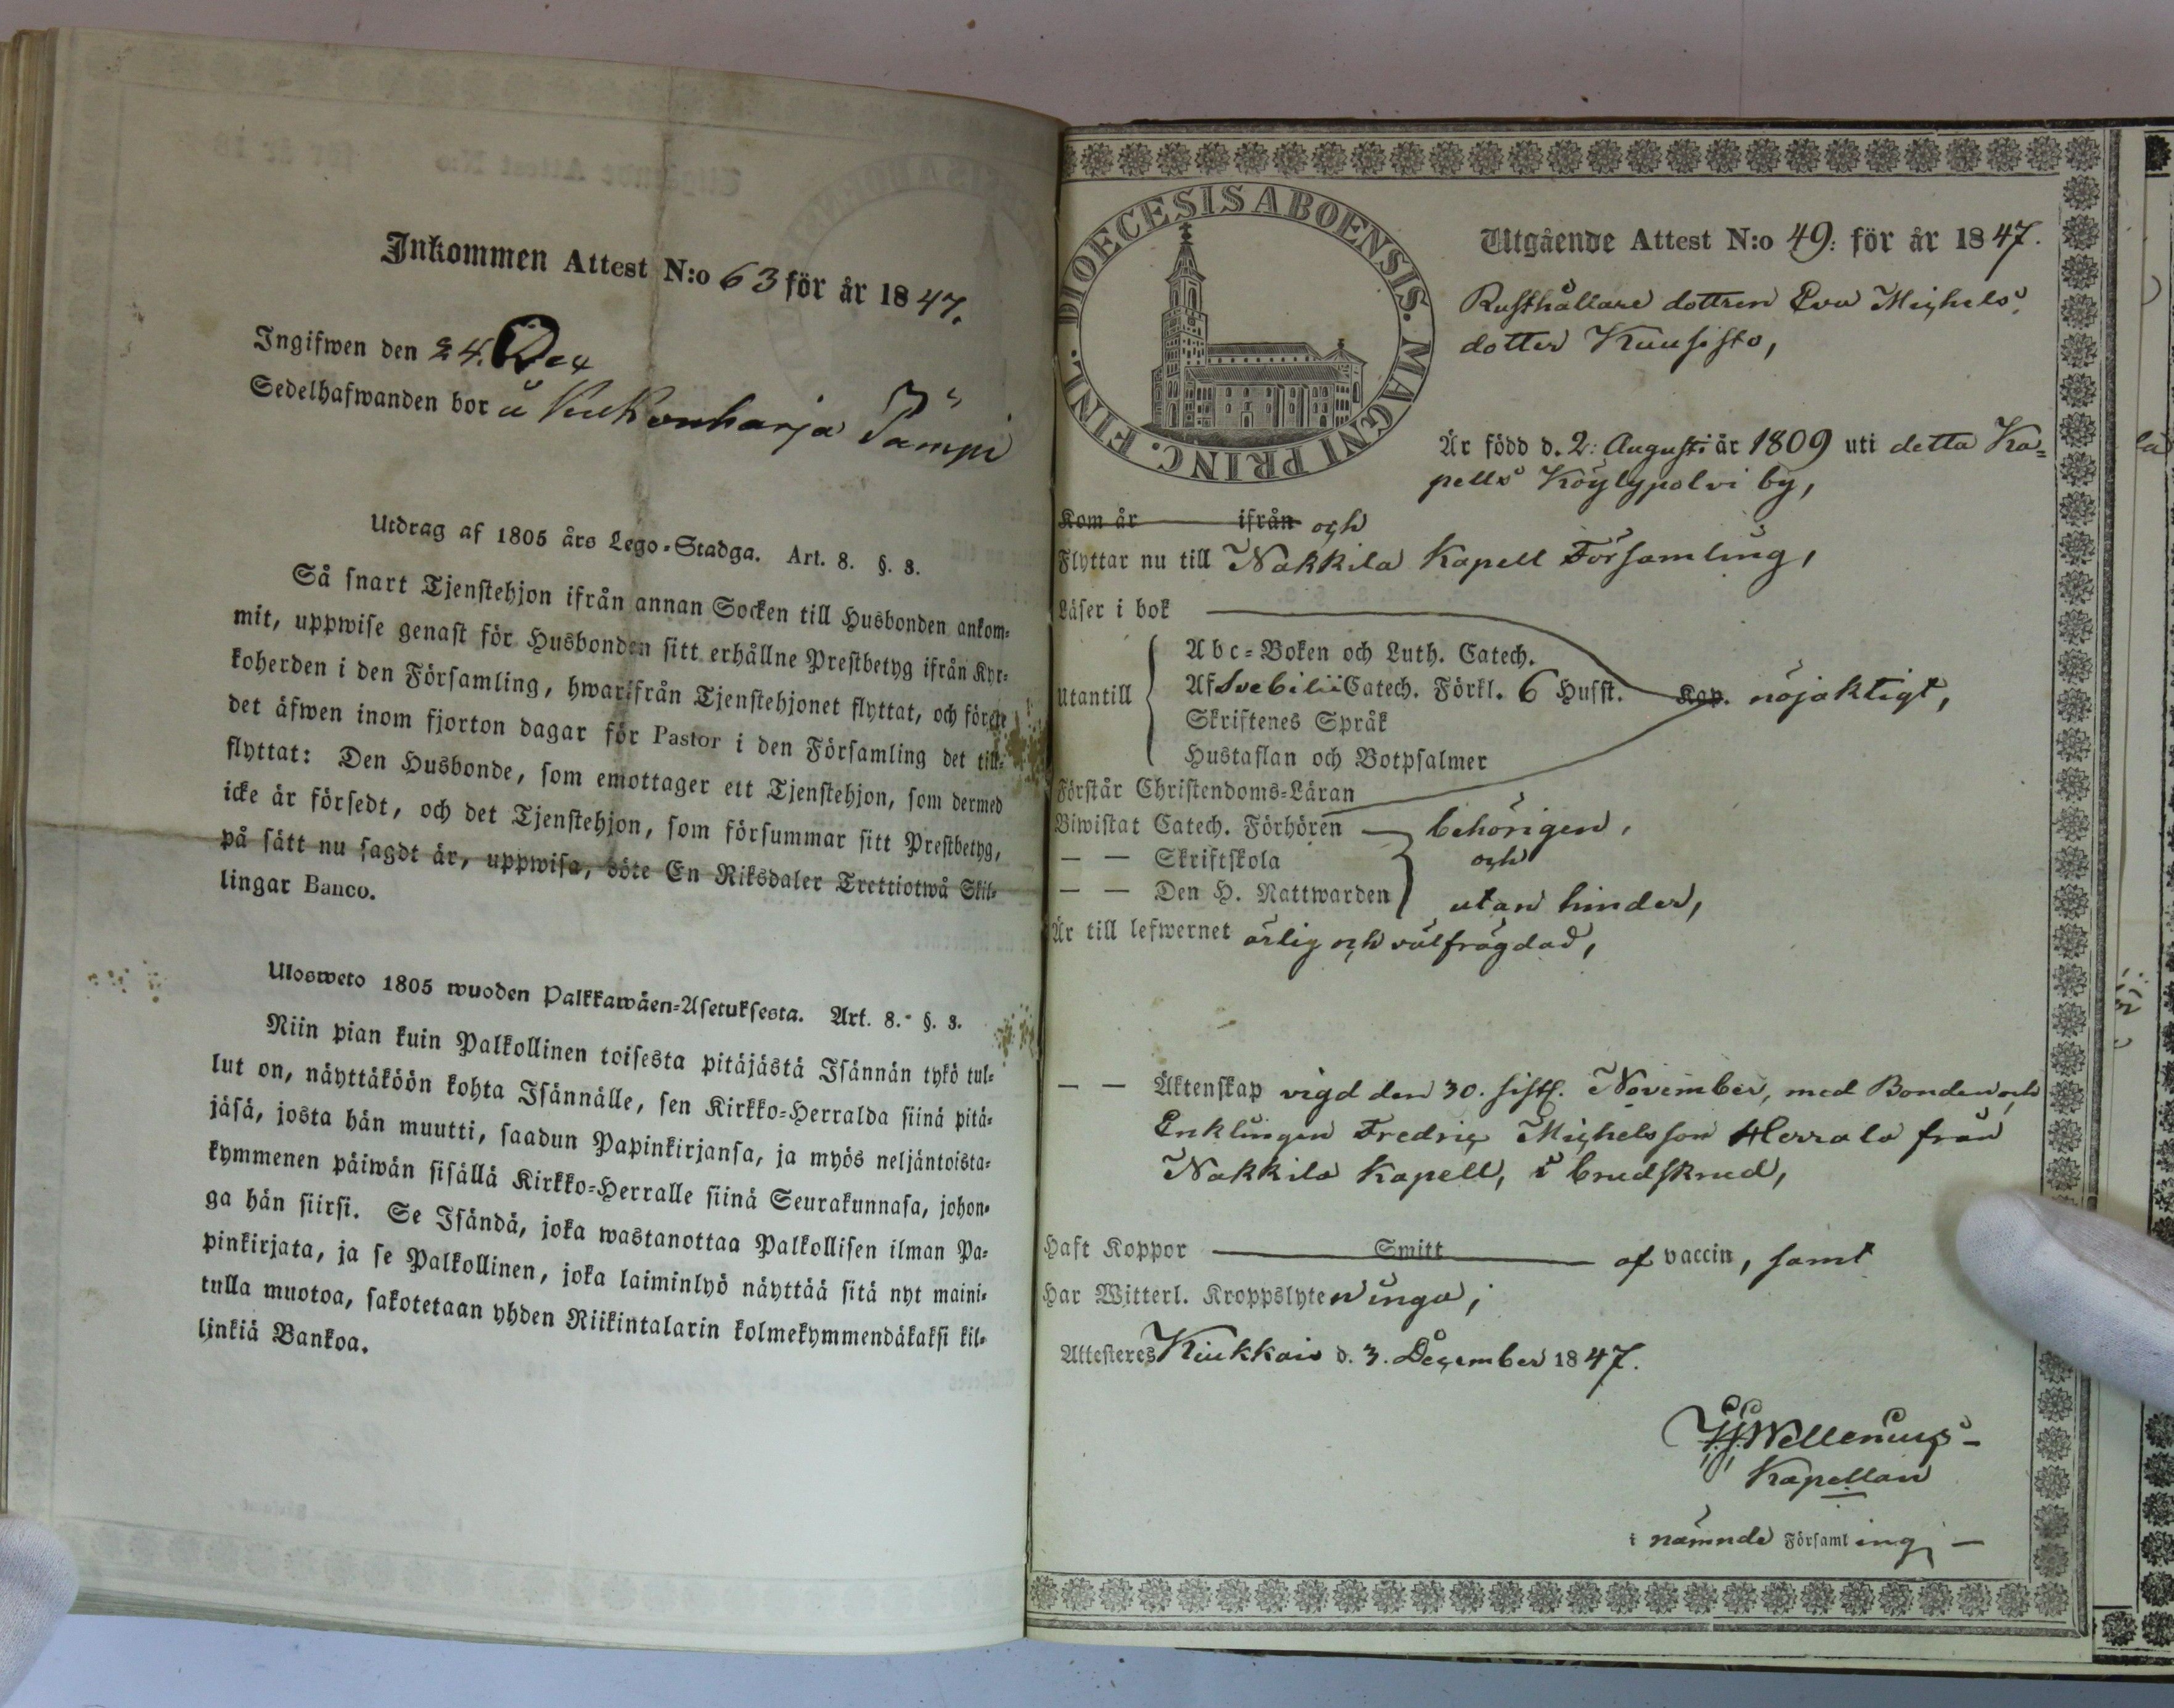 Inkommen Attest N:o 63 för år 1847.
Ingifwen den 24. Dec
Sedelhafwanden bor å Kukonharja Tampi
Utdrag af 1805 års Lego-Stadga. Art. 8. §. 3.
Så snart Tjenstehjon ifrån annan Socken till Husbonden ankom-
mit, uppwise genast för Husbonden sitt erhållne Prestbetyg ifrån Kyr-
koherden i den Församling, hwarifrån Tjenstehjonet flyttat, och förete
det äfwen inom fjorton dagar för Pastor i den Församling det till-
flyttat: Den Husbonde, som emottager ett Tjenstehjon, som dermed
icke är försedt, och det Tjenstehjon, som försummar sitt Prestbetyg,
på sätt nu sagdt är, uppwisa, böte En Riksdaler Trettiotwå Skil-
lingar Banco.
Ulosweto 1805 wuoden Palkkawäen-Asetuksesta. Art. 8. §. 3.
Niin pian kuin Palkollinen toisesta pitäjästä Isännän tykö tul-
lut on, näyttäköön kohta Isännälle, sen Kirkko-Herralda siinä pitä-
jäsä, josta hän muutti, saadun Papinkirjansa, ja myös neljäntoista-
kymmenen päiwän sisällä Kirkko-Herralle siinä Seurakunnasa, johon-
ga hän siirsi. Se Isändä, joka wastanottaa Palkollisen ilman Pa-
pinkirjata, ja se Palkollinen, joka laiminlyö näyttää sitä nyt maini-
tulla muotoa, sakotetaan yhden Riikintalarin kolmekymmendäkaksi kil-
linkiä Bankoa.
DIOECESIS ABOENSIS. MAGNI PRINC. FINL.
Utgående Attest N:o 49. för år 1847.
Rusthållare dottren Eva Michels
dotter Kuusisto,
Är född d. 2. Augusti år 1809 uti detta Ka=
pells Köylypolvi by,
Kom år ifrån och
Flyttar nu till Nakkila Kapell Församling,
Läser i bok
Utantill
Abc-Boken och Luth. Catech.
Af Svebilii Catech. Förkl. 6 Husst. Kap. nöjaktigt,
Skriftenes Språk
Hustaflan och Botpsalmer
Förstår Christendoms-Läran
Biwistat Catech. Förhören behörigen,
— — Skriftskola och
— — Den H. Nattwarden utan hinder,
Är till lefwernet ärlig och välfrägdad,
— — Äktenskap vigd den 30. sistl. November, med Bonden och
Enklingen Fredric Michelsson Herrala från
Nakkila Kapell, i brudskrud,
Haft Koppor Smitt af vaccin, samt
Har Witterl. Kroppslyten inga,
Attesteres Kiukkais d. 3. December 1847.
Wellenius
Kapellan
i nämnde Församling